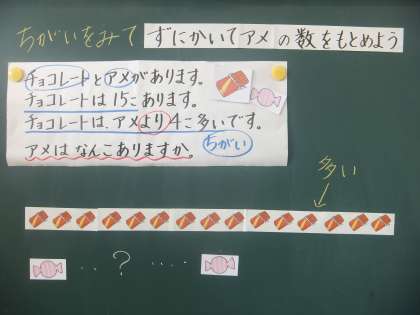 ちがいをみて ずにかいてアメの数をもとめよう
チョコレートとアメがあります。
チョコレートは15こあります。
チョコレートは、アメより4こ多いです。
アメはなんこありますか。
ちがい
多い
‥?‥‥